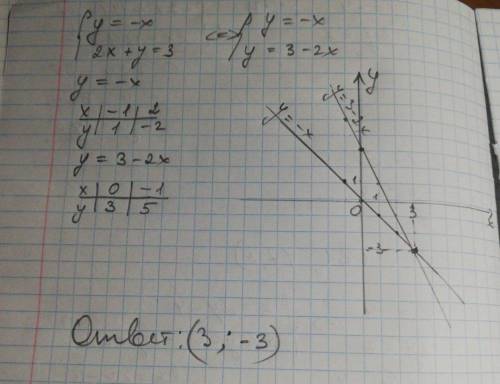 { y = -x
2x + y = 3 <=> { y = -x
y = 3 - 2x
y = -x
x | -1 | 2
y | 1 | -2
y = 3 - 2x
x | 0 | -1
y | 3 | 5
y
y = 3 - 2x
y = -x
1
0 1 3 x
-3
Ответ: (3; -3)